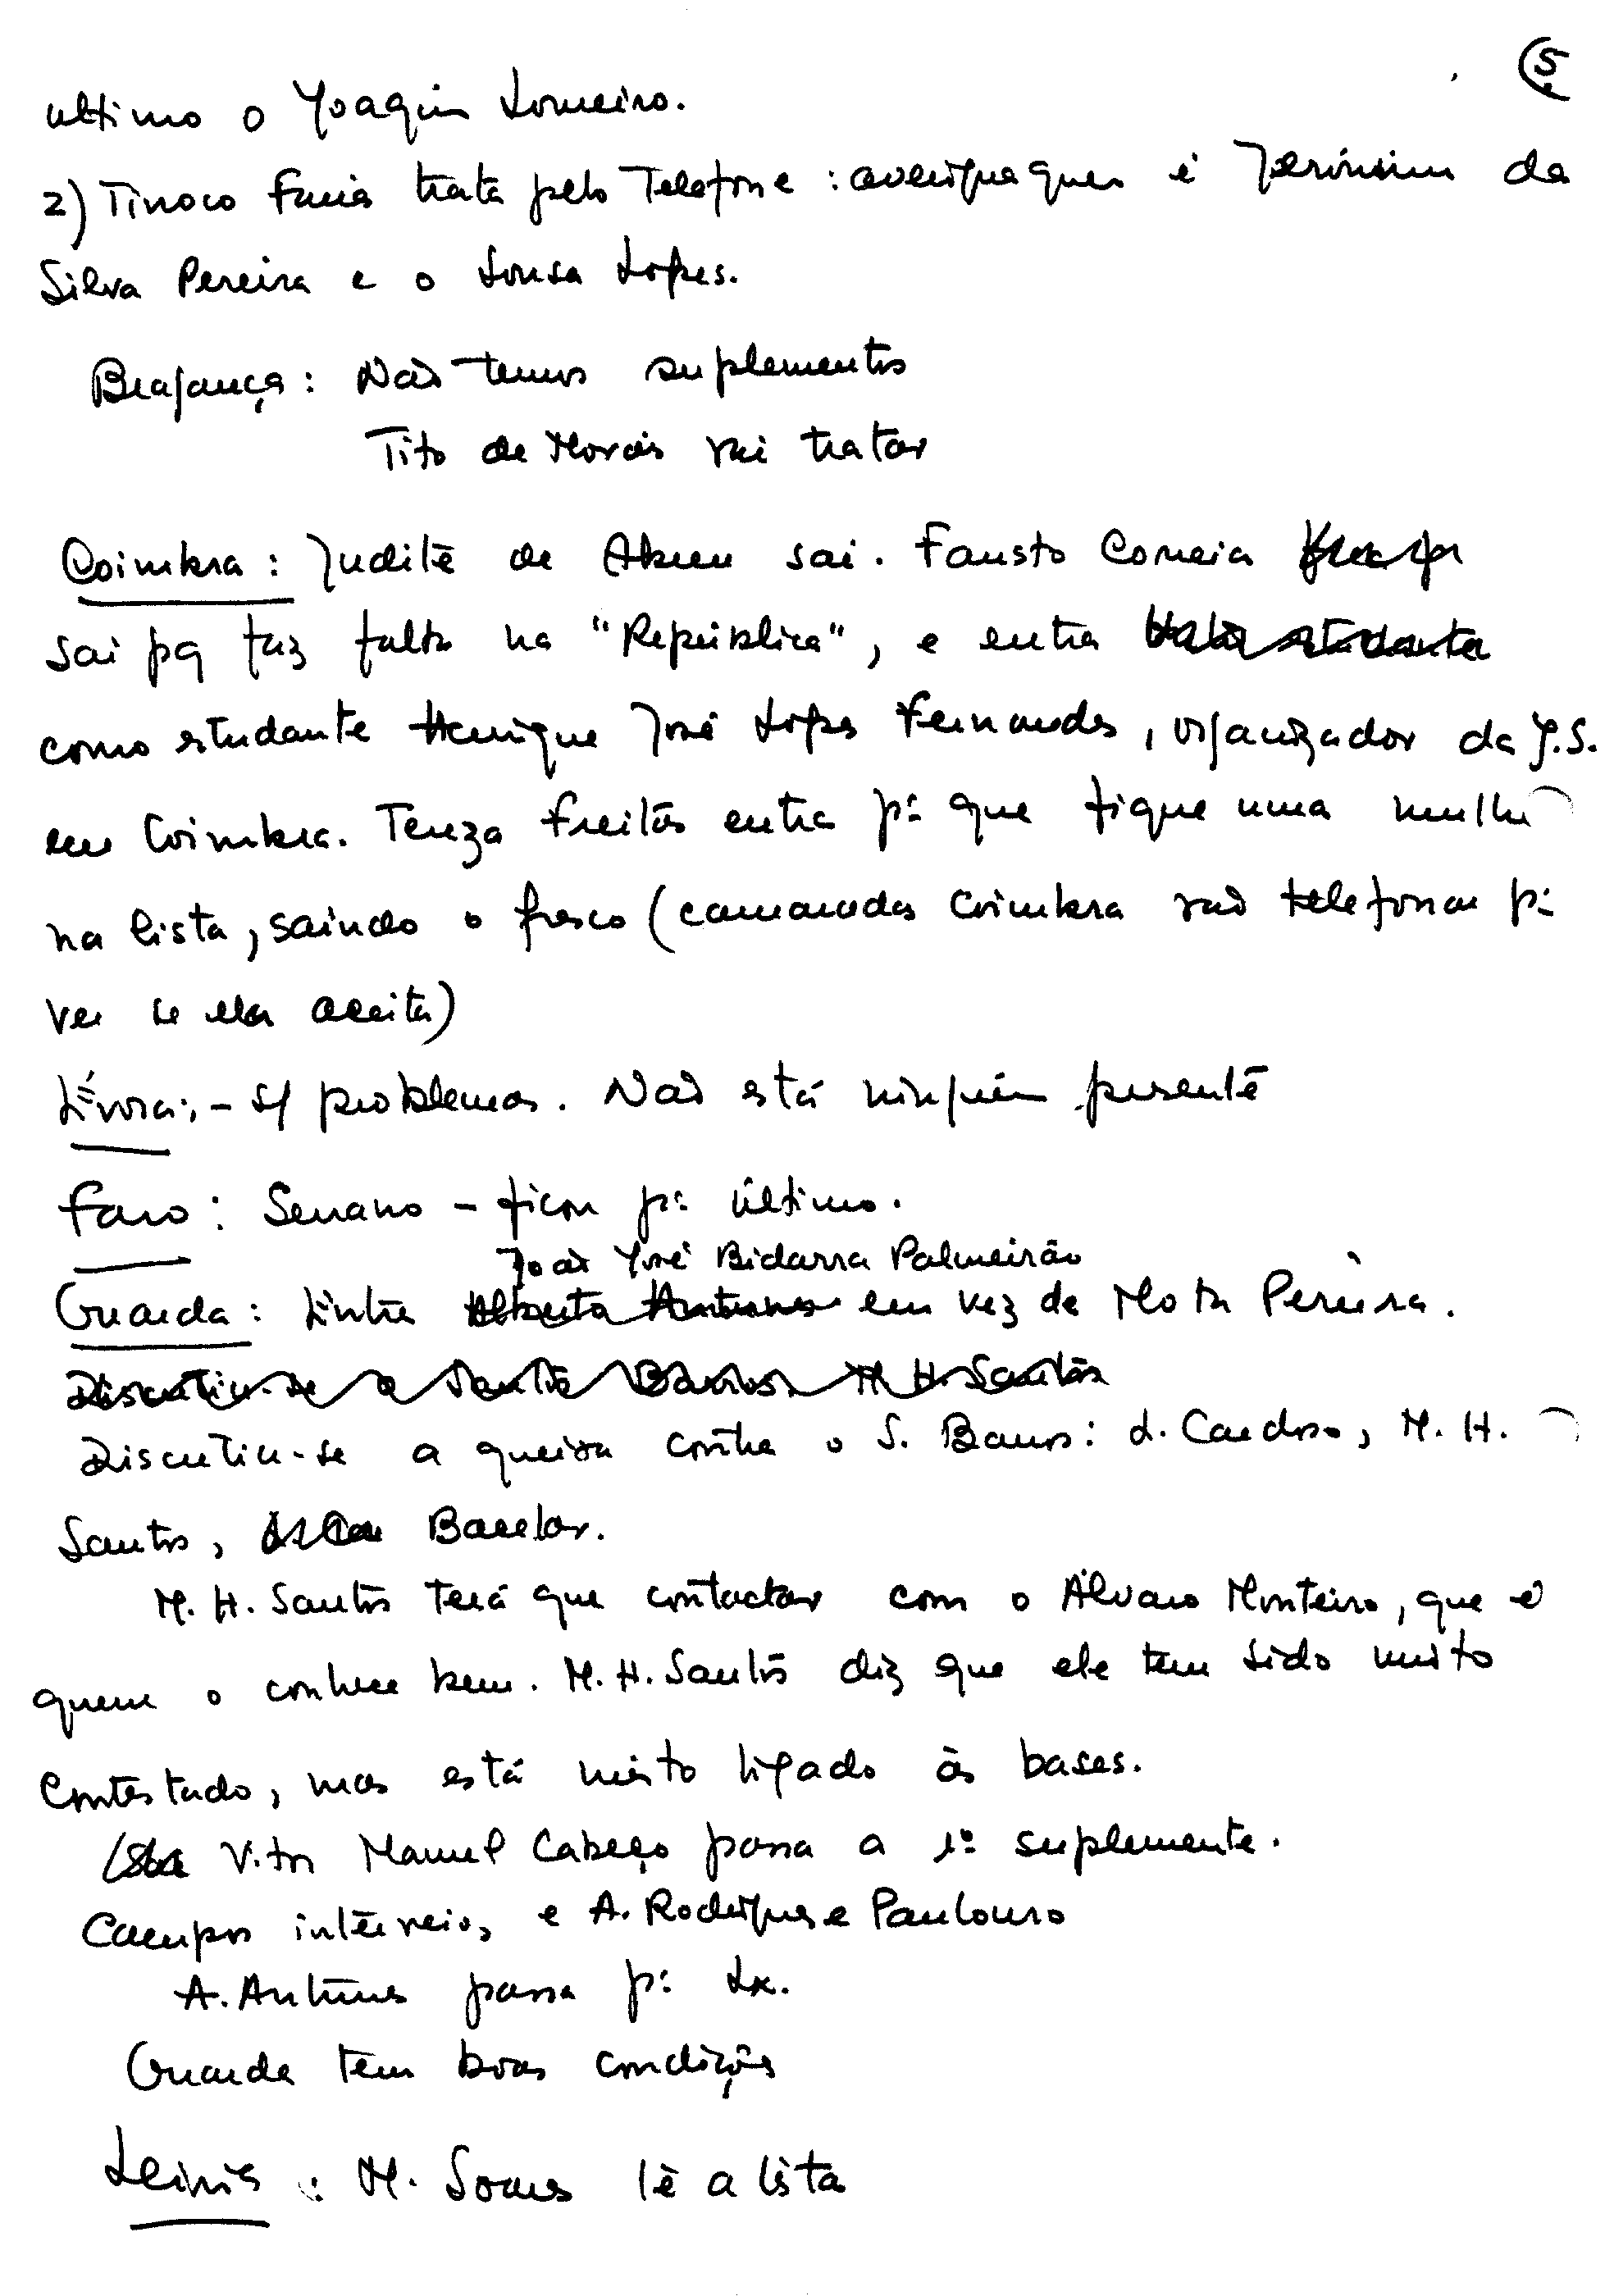 5.
ultimo o Joaquim Loureiro.
2) Tinoco Faria trata pelo Telefone : averigua quem é Jerónimo da
Silva Pereira e o Sousa Lopes.
Bragança : Não temos suplementes
Tito de Morais vai tratar
Coimbra : Judite de Abreu sai. Fausto Correia
sai pq faz falta na "República", e entra
como estudante Henrique José Lopes Fernandes, organizador da J.S.
em Coimbra. Tereza Freitas entra pª que fique uma mulher
na lista, saindo o fresco (camaradas Coimbra vão telefonar pª
ver se ela aceita)
Évora: - s/ problemas. Não está ninguém presente
Faro : Serrano - ficou pª último.
João José Bidarra Palmeirão
Guarda : Entra Alberto Antunes em vez de Mota Pereira.
Discutiu-se o Santos Barros. M. H. Santos
Discutiu-se a queixa contra o S. Barros : L. Cardoso, M. H.
Santos, Bacelar.
M. H. Santos terá que contactar com o Álvaro Monteiro, que é
quem o conhece bem. M. H. Santos diz que ele tem sido muito
contestado, mas está muito ligado às bases.
Vitor Manuel Cabeço passa a 1º suplemente.
Campos interveio, e A. Rodrigues e Paulouro
A. Antunes passa pª Lx.
Guarda tem boas condições
Leiria : M. Soares lê a lista